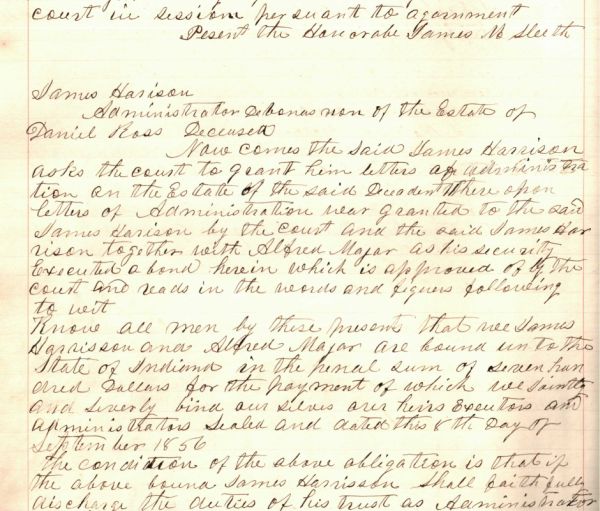 court in session persuant to agornment
Pesent the Honorabe James M Sleeth
James Harison
Administrator Debonas non of the Estate of
Daniel Ross Deceased
Now comes the said James Harrison
asks the court to grant him letters of administra
tion on the Estate of the said Decadent Where upon
letters of Administration wear granted to the said
James Harison by the court and the said James Har
rison together with Alfred Major as his security
Executed a bond herein which is approved of by the
court and reads in the words and figuers following
to wit
Know all men by these presents that wee James
Harrisson and Alfred Major are bound un to the
State of Indiana in the penal sum of seven hun
dred Dollars for the payment of which we Jointly
and severly bind our selves our heirs Executors and
administrators Sealed and dated this 8th Day of
September 1856
The condition of the above obligation is that if
the above bound James Harrisson Shall faithfully
discharge the duties of his trust as Administrator